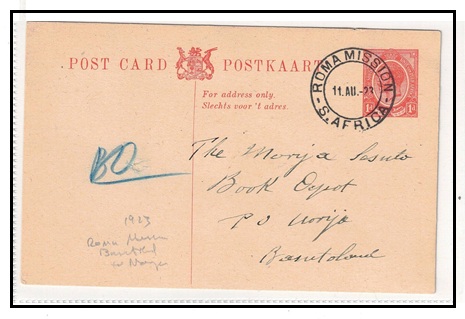 POST CARD POSTKAART
For address only.
Slechts voor 't adres.
ROMA MISSION
11.AU.-23
S. AFRICA
1d 1d
BO
The Morija Sesuto
Book Depot
PO Morija
Basutoland
1923
Roma